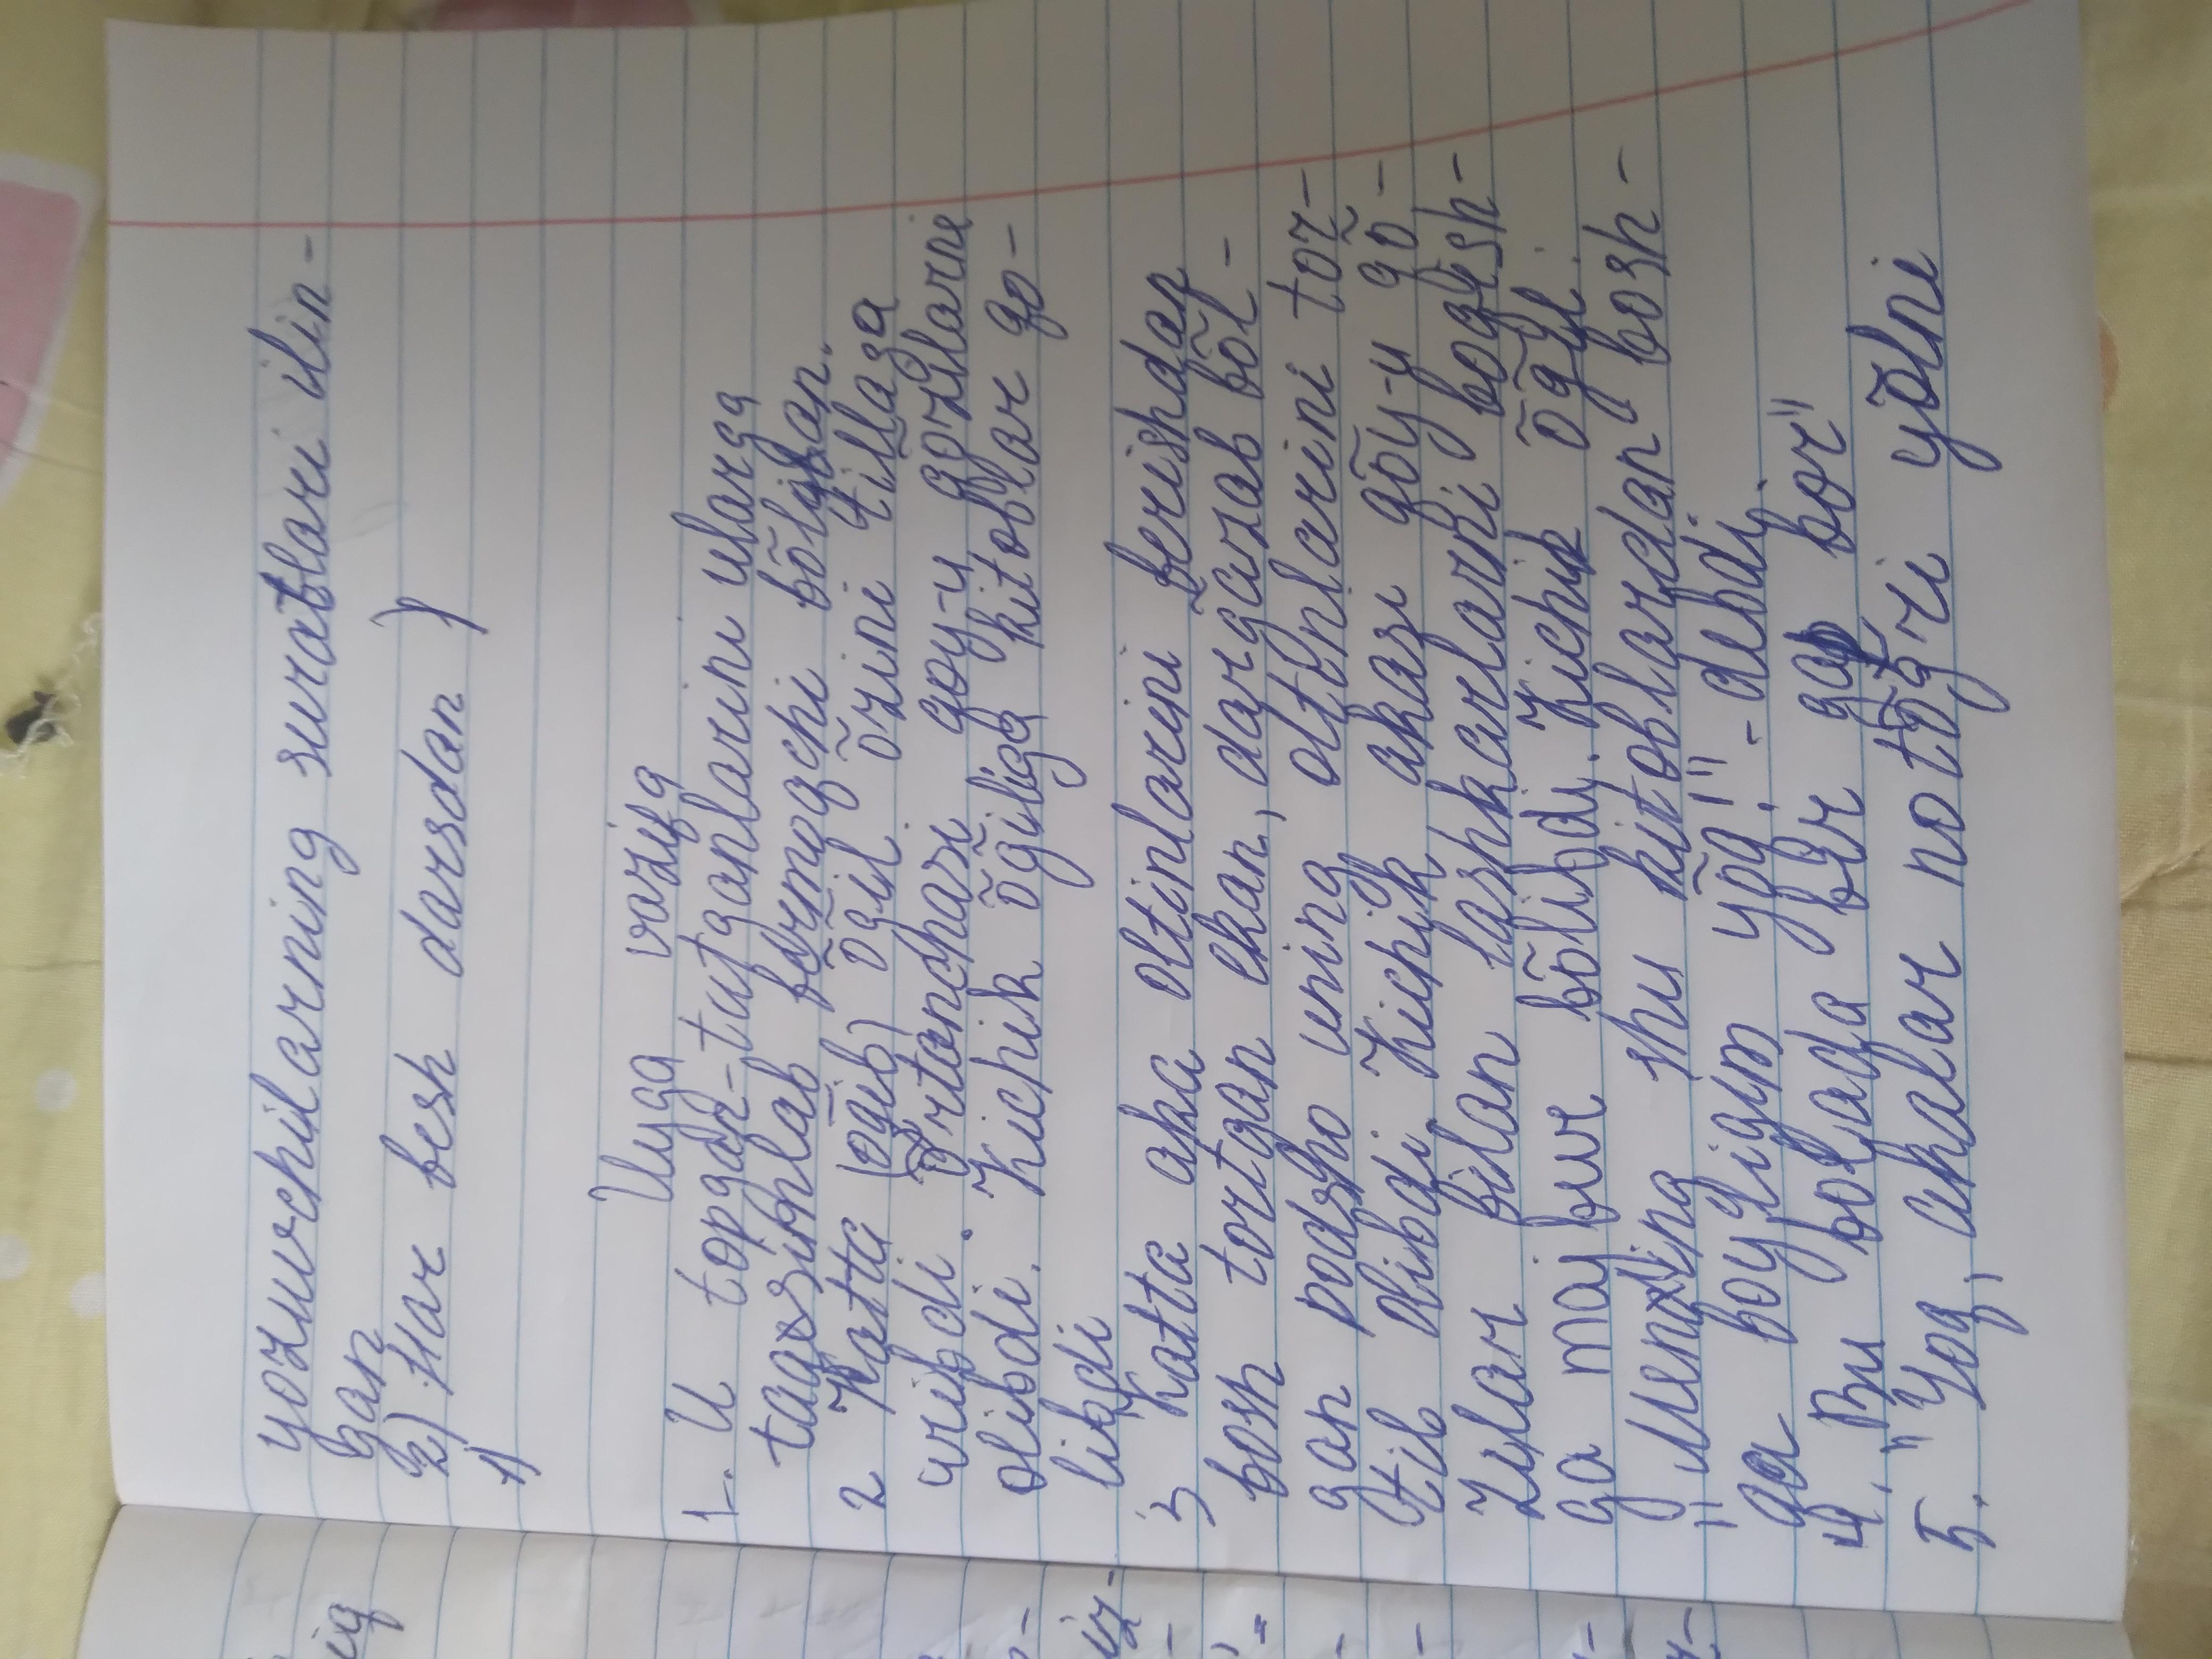 yozuvchilarning suratlari ilin-
gan
2) Har besh darsdan
1)
Uyga vazifa
1. U topgan-tutganlarini ularga
taqsimlab bermoqchi bõlibdi.
2 Katta (õgib) õgil õzini tillaga
uribdi. Õrtanchasi qoy-u qozilarni
olibdi. Kichik õgiliga kitoblar qo-
libdi
3 Katta aka oltinlarini berishdan
bosh tortgan ekan, darg̃azab bõl-
gan podsho uning oltinlarini tor-
tib olibdi. Kichik akasi qõy-u qõ-
zilar bilan lashkarlarni boqish-
ga majbur bõlibdi. Kichik õgil
"Mening shu kitoblardan bosh-
qa boyligim yõq!" - debdi.
4. Bu bolada bir gap bor"
5. "Yoq, akalar notõg̃ri yõlni
iq
iz-